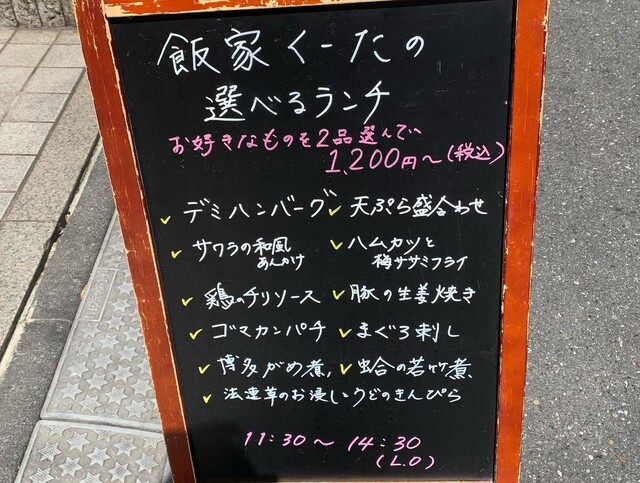 飯家くーたの
選べるランチ
お好きなものを2品選んで、
1,200円〜(税込)
✓デミハンバーグ ✓天ぷら盛合わせ
✓サワラの和風あんかけ ✓ハムカツと梅ササミフライ
✓鶏のチリソース ✓豚の生姜焼き
✓ゴマカンパチ ✓まぐろ刺し
✓博多がめ煮 ✓蛤の若竹煮
✓法蓮草のお浸しとうどのきんぴら
11:30〜14:30
(L.O)